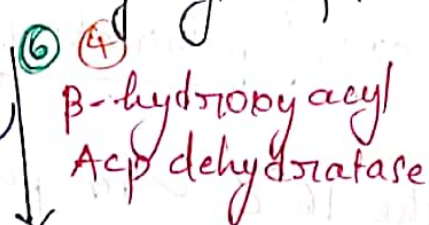 ⑥ ④
β-hydroxy acyl
Acp dehydratase